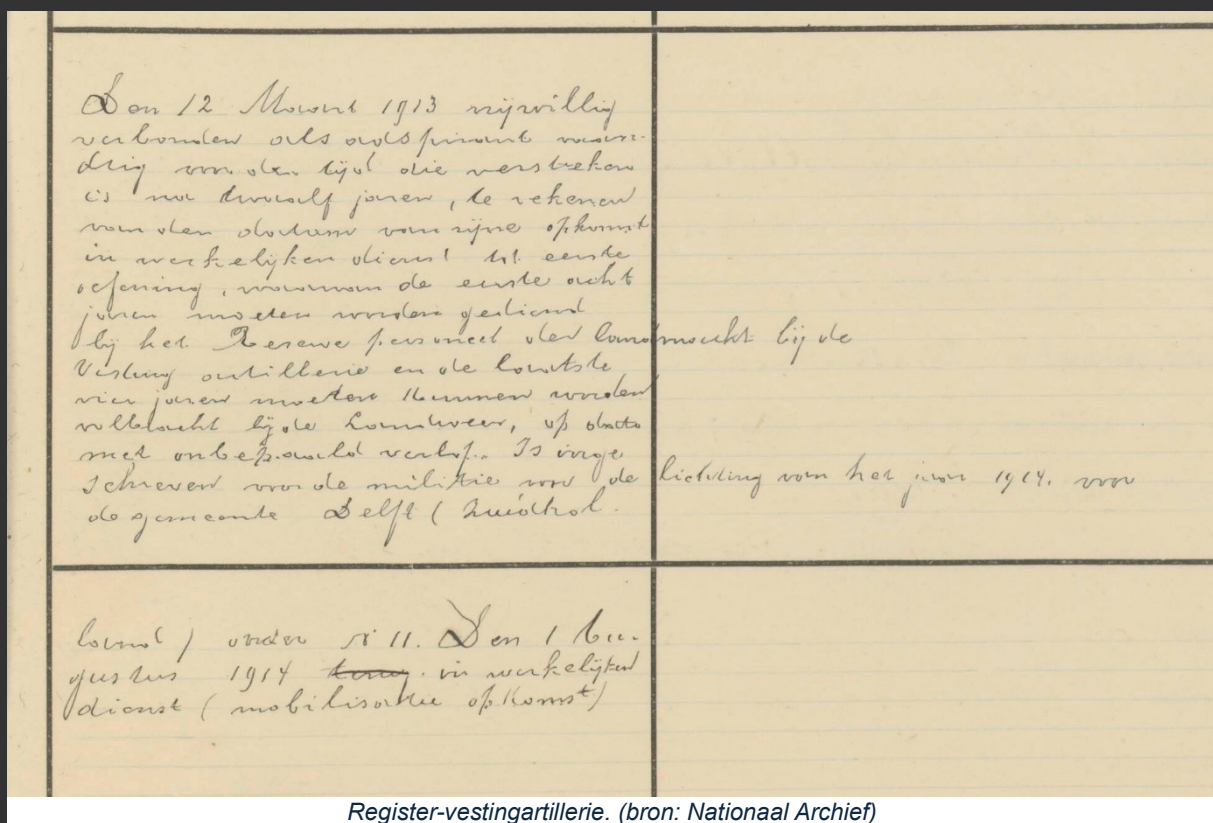 Den 12 Maart 1913 vrijwillig
verbonden als adspirant vaan-
drig voor den tijd die verstreken
is na twaalf jaren, te rekenen
van den datum van zijne opkomst
in werkelijken dienst tot eerste
oefening, waarvan de eerste acht
jaren moeten worden gediend
bij het Reserve personeel der landmacht bij de
Vesting artillerie en de laatste
vier jaren moeten kunnen worden
volbracht bij de Landweer, op dato
met onbepaald verlof. Is inge
schreven voor de militie voor de lichting van het jaar 1914. voor
de gemeente Delft (Zuidhol.
land) onder N 11. Den 1 Au-
gustus 1914 terug. in werkelijken
dienst (mobilisatie opkomst)
Register-vestingartillerie. (bron: Nationaal Archief)